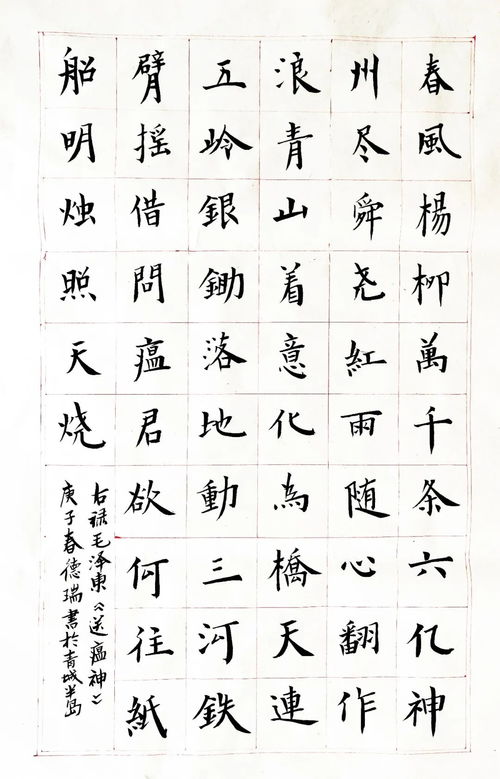 春風楊柳萬千条六亿神
州尽舜尧紅雨随心翻作
浪青山着意化為橋天連
五岭銀鋤落地動三河鉄
臂摇借問瘟君欲何往紙
船明烛照天烧
右禄毛泽東《送瘟神》
庚子春德瑞書於青城半岛